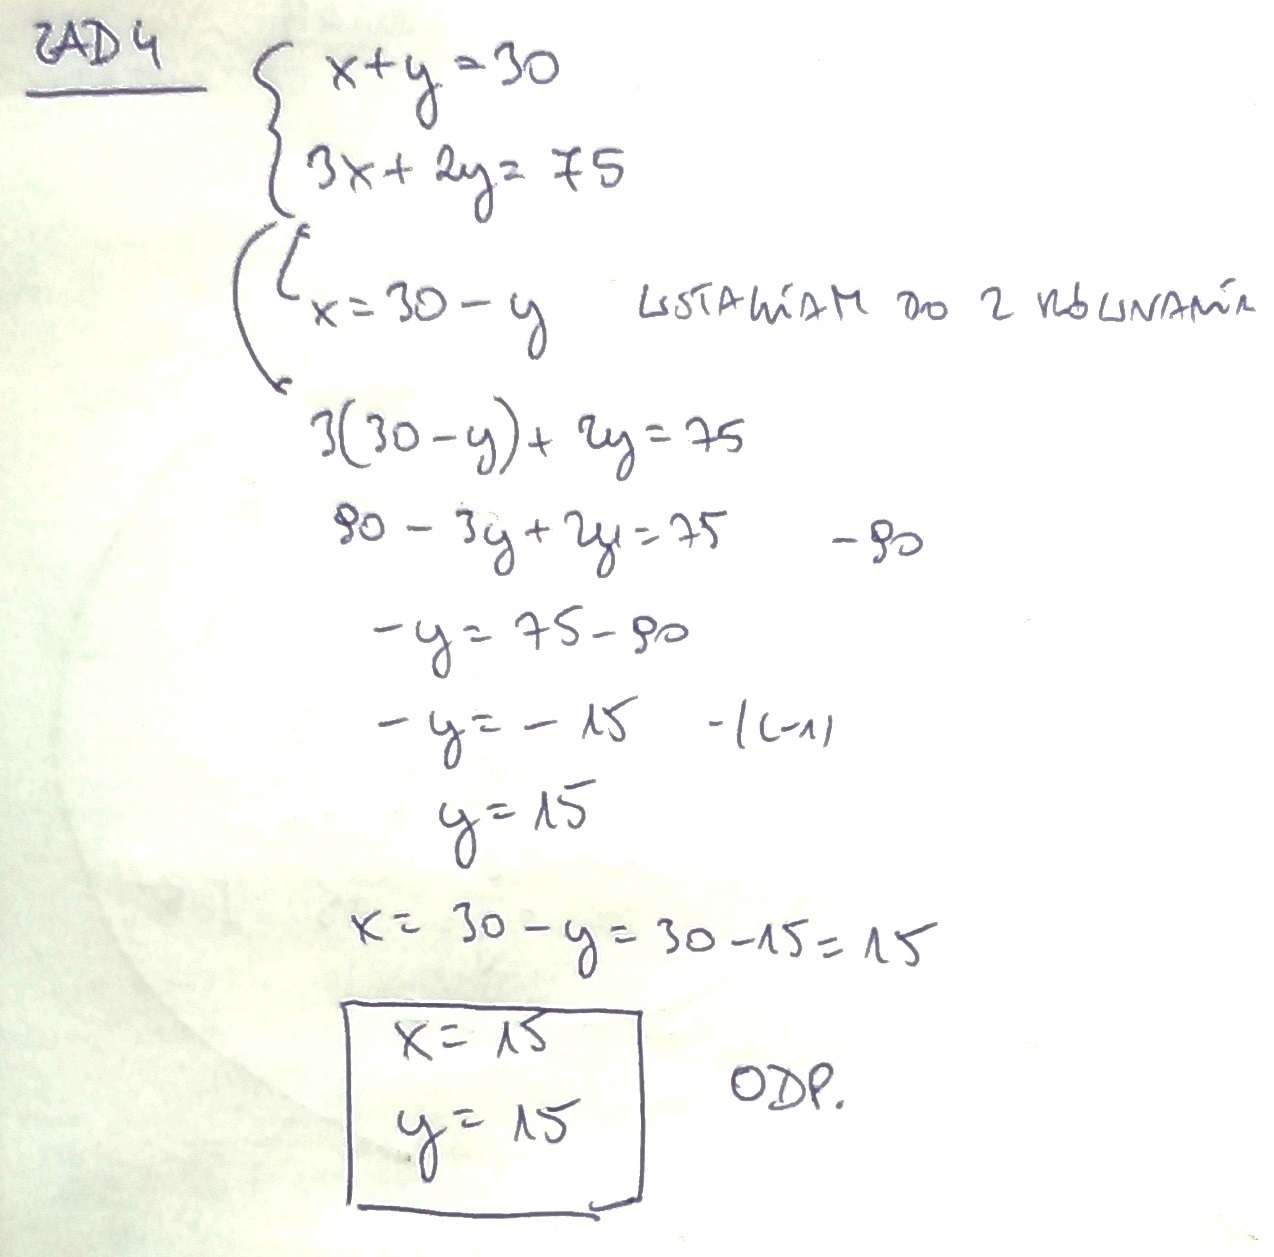 ZAD 4
x+y=30
3x+2y=75
x=30-y WSTAWIAM DO 2 RÓWNANIA
3(30-y)+2y=75
90-3y+2y=75 -90
-y=75-90
-y=-15 -/(-1)
y=15
x=30-y=30-15=15
x=15
y=15
ODP.